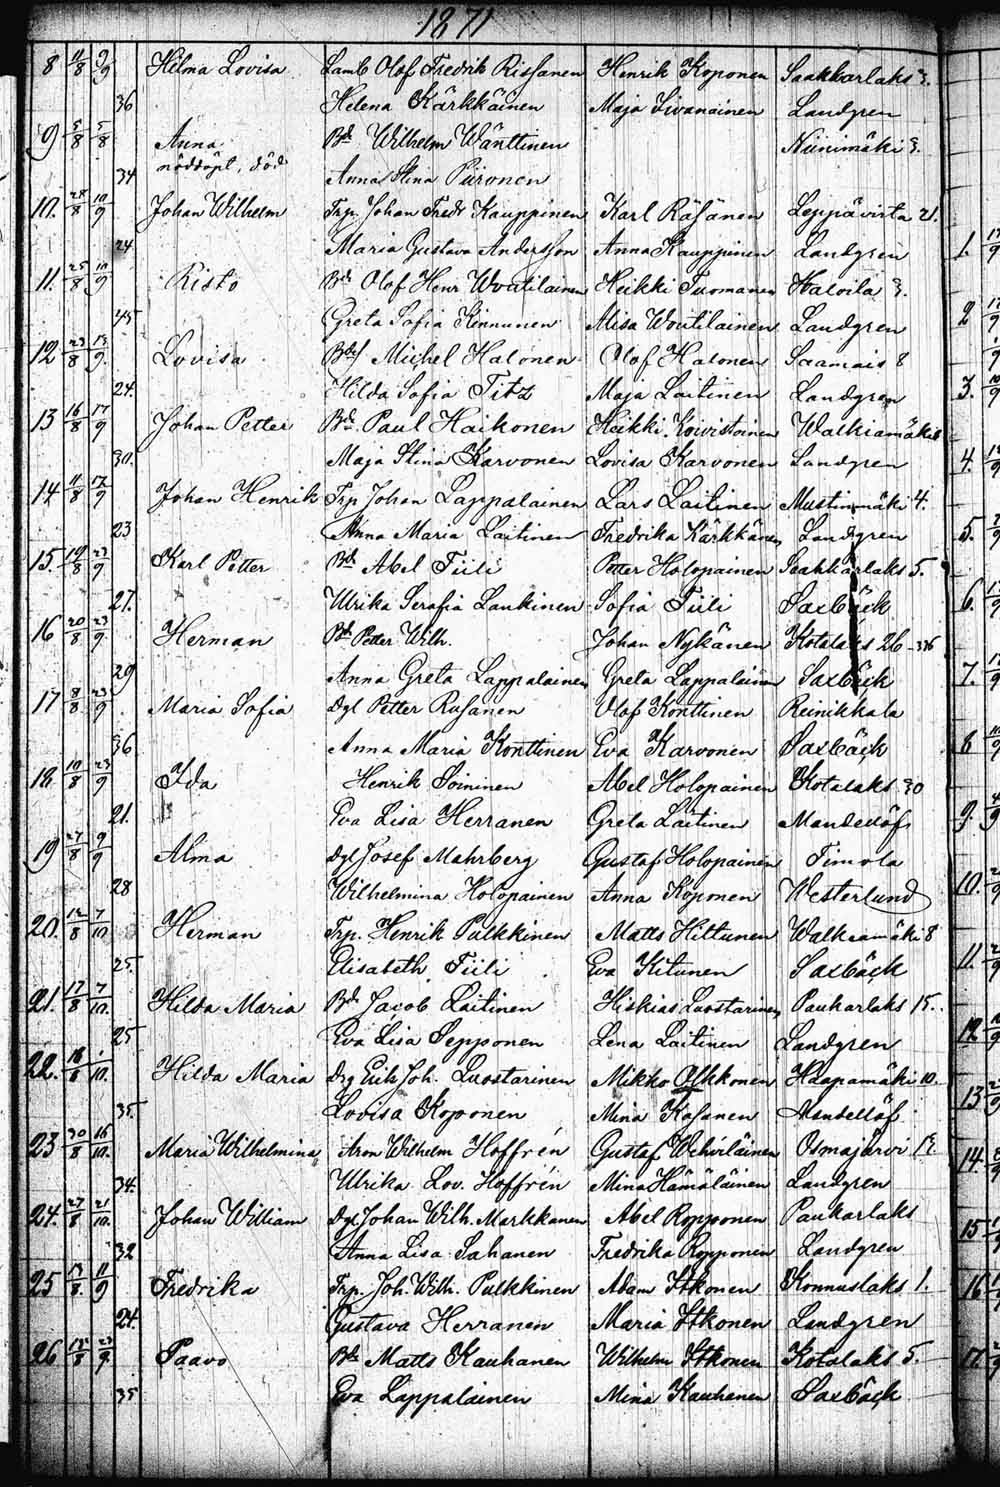 1871
8 11/8 9/9 Hilma Lovisa Lamb Olof Fredrik Rissanen Henrik Koponen Saakkarlaks 3.
36 Helena Kärkkäinen Maja Sivanainen Landgren
9 5/8 5/8 Anna Bd Wilhelm Wänttinen Niinimäki 3.
nöddöpt, död
34 Anna Stina Piironen
10. 28/8 10/9 Johan Wilhelm Trp. Johan Fredr Kauppinen Karl Räsänen Leppävirta 21.
24 Maria Gustava Andersson Anna Kauppinen Landgren
11. 25/8 10/9 Risto Bd Olof Henr Woutilainen Heikki Tuomanen Haloila 3.
45 Greta Sofia Kinnunen Misa Woutilainen Landgren
12 23/8 13/9 Lovisa Michel Halonen Olof Halonen Saamais 8
24. Hilda Sofia Titz Maja Laitinen Landgren
13 16/8 17/9 Johan Petter Bd. Paul Haikonen Heikki Koivistoinen Walkiamäki 8
30. Maja Stina Karvonen Lovisa Karvonen Landgren
14. 11/8 17/9 Johan Henrik Trp Johan Lappalainen Lars Laitinen Mustinmäki 4.
23 Anna Maria Laitinen Fredrika Kärkkänen Landgren
15. 19/8 23/9 Karl Petter Bd. Abel Tiili Petter Holopainen Saahkarlaks 5.
27. Ulrika Serafia Laukinen Sofia Tiili Saxbäck
16 20/8 23/9 Herman Bd Petter Wilh. Johan Nykänen Kotalaks 26
29 Anna Greta Lappalainen Greta Lappalainen Saxbäck
17 8/8 23/9 Maria Sofia Dgl Petter Rusanen Olof Konttinen Reinikkala
36 Anna Maria Konttinen Eva Karvonen Saxbäck
18. 19/8 23/9 Ida Henrik Soininen Abel Holopainen Kotalaks 30
21. Eva Lisa Herranen Greta Laitinen Mandellöf
19 27/8 9/9 Alma Dgl Josef Mahrberg Gustaf Holopainen Timola
28 Wilhelmina Holopainen Anna Koponen Westerlund
20. 12/8 7/10 Herman Trp. Henrik Pulkkinen Matts Hiltunen Walkeamäki 8
25. Elisabeth Tiili Eva Kitunen Saxbäck
21. 17/8 7/10. Hilda Maria Bd Jacob Laitinen Hiskias Luostarinen Paukarlaks 15.
25 Eva Lisa Sepponen Lena Laitinen Landgren
22. 18/8 1/10. Hilda Maria Drg Erik Joh. Luostarinen Mikko Olkkonen Haapamäki 10.
35. Lovisa Koponen Mina Kosanen Mandellöf
23 30/8 16/10. Maria Wilhelmina Aron Wilhelm Hoffrén Gustaf Wehviläinen Osmajärvi
34. Ulrika Lov. Hoffrén Mina Hämäläinen Landgren
24. 27/8 21/10. Johan William Dgl Johan Wilh. Markkanen Abel Ropponen Paukarlaks
32 Anna Lisa Sahanen Fredrika Ropponen Landgren
25 /8. 11/9 Fredrika Trp. Joh. Wilh. Pulkkinen Adam Itkonen Konnuslaks 1.
24. Gustava Herranen Maria Itkonen Landgren
26 12/8 23/9 Paavo Bd Matts Kauhanen Wilhelm Itkonen Kotalaks 5.
35 Eva Lappalainen Mina Kauhanen Saxbäck